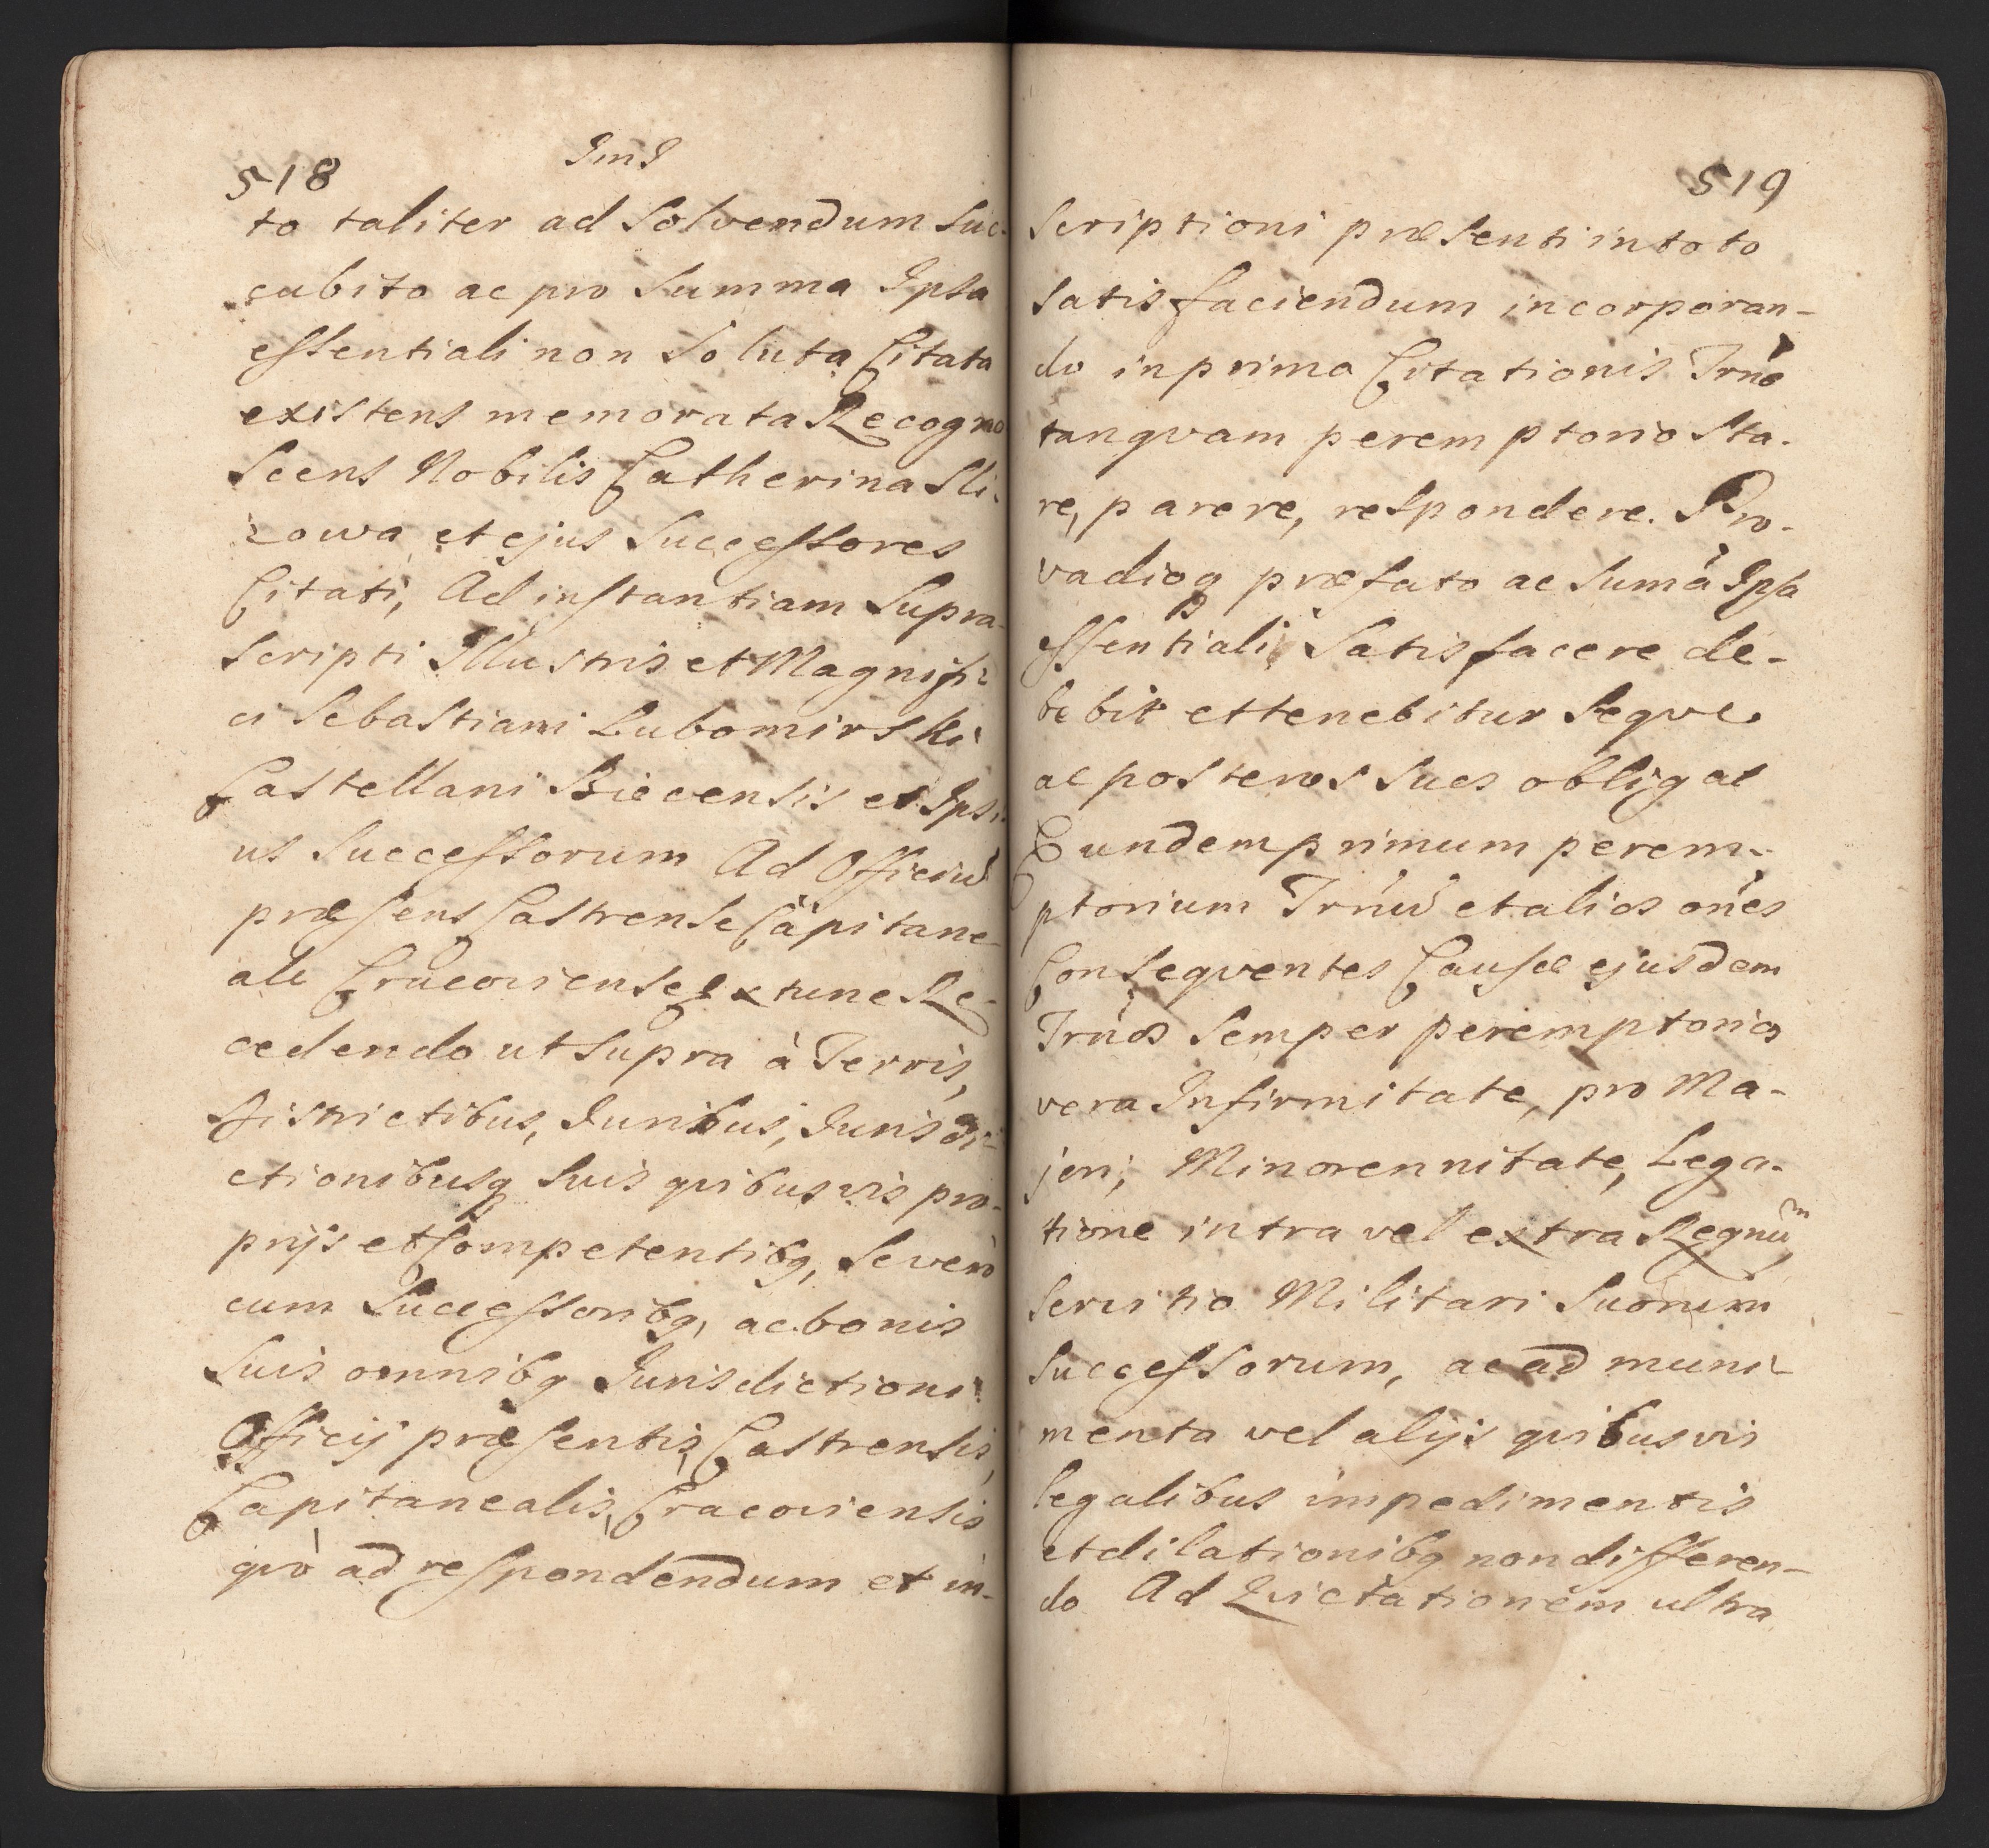 518
JmJ
to taliter ad Solvendum Suc-
cubito ac pro Summa Ipsa
essentiali non Soluta Citata
existens memorata Recogno
Scens Nobilis Catherina Sli-
zowa et ejus Successores
Citati, Ad instantiam Supra-
Scripti Illustris et Magnifi-
ci Sebastiani Lubomirski
Castellani Biecensis et Ipsi-
us Successorum Ad Officiũ
præsens Castrense Capitane-
ale Cracoviense Extunc Re-
cedendo ut Supra à Terris,
Districtibus, Juribus, Jurisdi-
ctionibusq Suis qvibusvis pro-
prijs et Competentibq, Se verò
cum Successoribq, ac bonis
Suis omnibq Jurisdictioni
Officij præsentis, Castrensis,
Capitanealis, Cracoviensis
qvò ad respondendum et in-
519
Scriptioni præsenti in toto
Satisfaciendum incorporan-
do in primo Citationis Trño
tanqvam peremptorio Sta-
re, parere, respondere. Pro-
vadioq præfato ac Sumâ Ipsa
essentiali Satisfacere de-
bebit et tenebitur Seqve
ac posteros Suos obligat
Eundem primum perem-
ptorium Trñũ et alios oñes
Conseqventes Causæ ejusdem
Trños Semper peremptorios
vera Infirmitate, pro Ma-
jori, Minorennitate, Lega-
tione intra vel extra Regnũm,
Servitio Militari Suorum
Successorum, ac ad muni-
menta vel alijs qvibusvis
legalibus impedimentis
et dilationibq non differen-
do Ad Qvietationem ultra